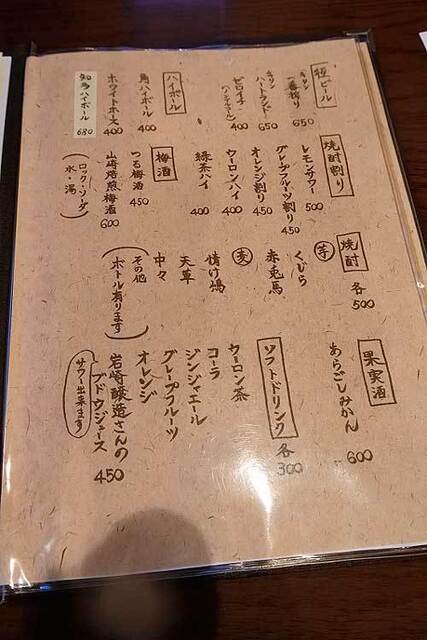 瓶ビール
キリン 一番搾り 650
キリン ハートランド 650
ゼロイチ (ノンアルコール) 400
ハイボール
角ハイボール 400
ホワイトホース 400
知多ハイボール 680
焼酎割り
レモンサワー 500
グレープフルーツ割り 450
オレンジ割り 450
ウーロンハイ 400
緑茶ハイ 400
梅酒
つる梅酒 450
山崎焙煎梅酒 600
(ロック・ソーダ・水・湯)
焼酎 各500
芋
くじら
赤兎馬
麦
情け嶋
天草
中々
(その他
ボトル有ります)
果実酒
あらごしみかん 600
ソフトドリンク 各300
ウーロン茶
コーラ
ジンジャエール
グレープフルーツ
オレンジ
岩崎醸造さんの
ブドウジュース 450
サワー出来ます